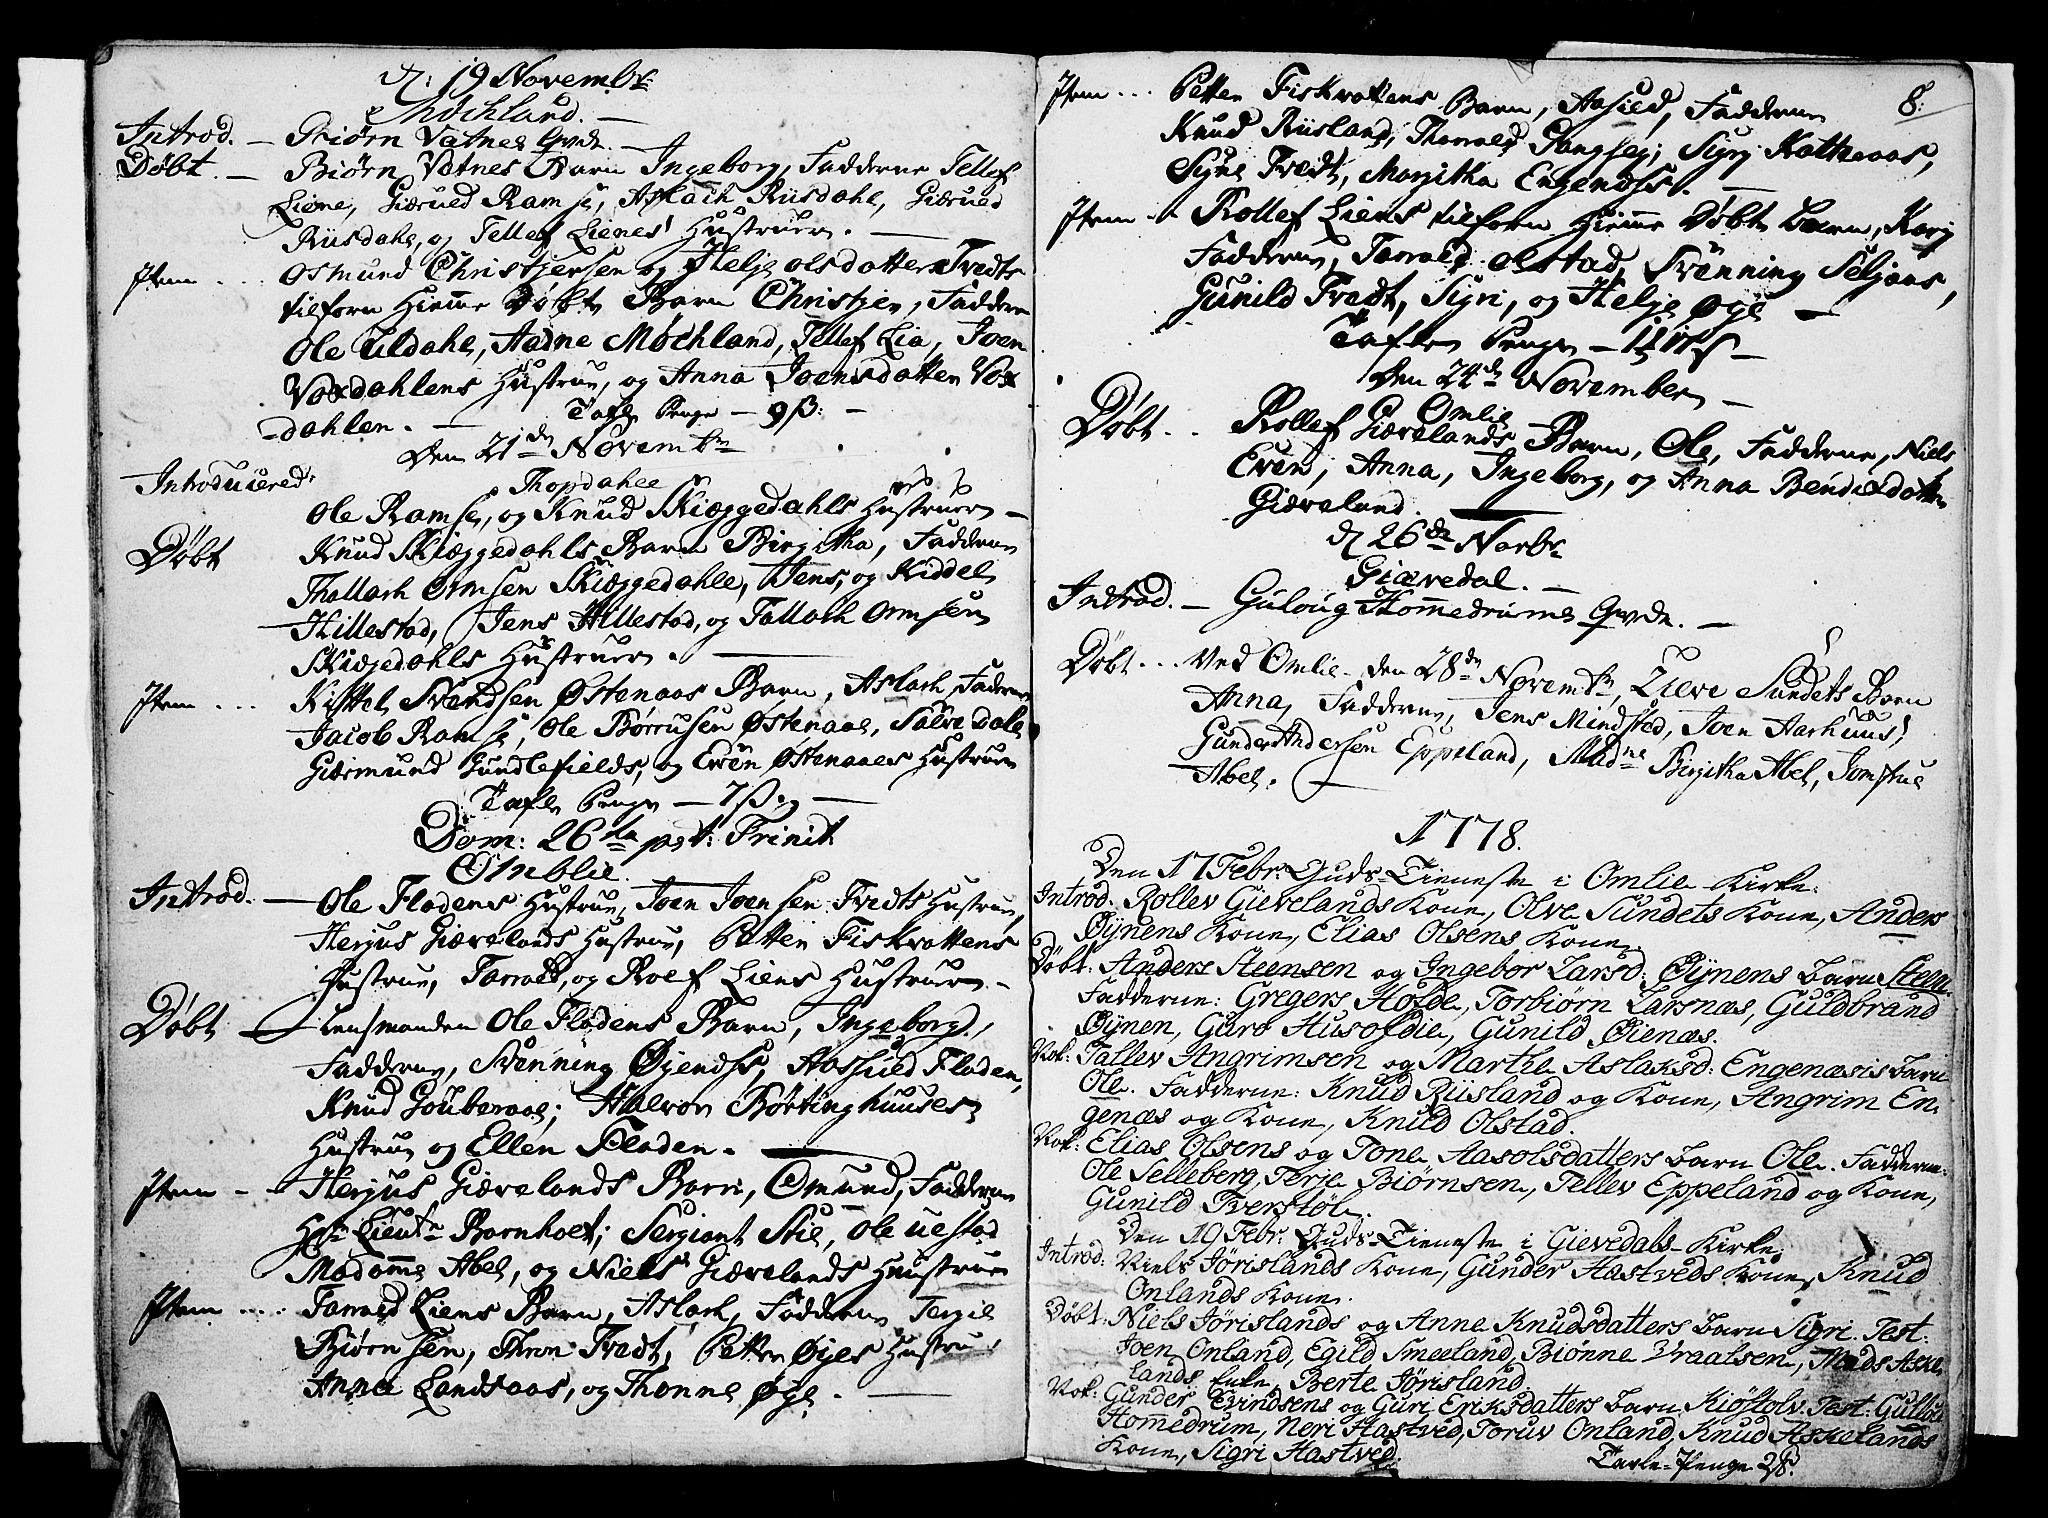 d. 19 Novembr
Mochland. —
Introd. — Biørn Vatnes Qvde. —
Døbt. — Biørn Vatnes Barn Ingeborg, Fadderne Tellef
Liene, Giærued Ramse, Aslach Riisdahl, Giærued
Riisdahl, og Tellef Lienes Hustruer. —
Item ... Osmund Christjensen og Helje olsdatter Tredts
tilforn Hiemme Døbte Barn Christjen, Faddere
Ole Uldahl, Aadne Mochland, Tellef Lia, Joen
Voxdahlens Hustrue, og Anna Joensdatter Vox
-dahlen. — Tafle Penge — 9 β: —
Den 21de Novembr
Thopdahle
Introducered: Ole Ramse, og Knud Skiæggedahls Hustruer —
Døbt Knud Skiæggedahls Barn Birgitha, Fadderne
Thallach Ormsen Skiæggedahle, Jens, og Kiddel
Hillestad, Jens Hillestad, og Tallach Ormsen
Skiæjedahls Hustruer. —
Item ... Kittel Svendsen Østenaas Barn, Aslach, Fadderne
Jacob Ramse, Ole Børrusen Østenaae, Salve Dale
Giærmund Gundlefields, og Even Østenaaes Hustruer
Tafle Penge — 7 β. —
Dom: 26de pst: Trinit
Omblie.
Introd. — Ole Fladens Hustrue, Joen Joensen Tredts Hustrue,
Herjus Giævelands Hustrue, Petter Fiskvattens
Hustrue, Tarvald, og Roef Liens Hustruer —
Døbt — Lensmanden Ole Fladens Barn, Ingeborg,
Fadderne, Svenning Øyendss, Aassued Fladen,
Knud Gouberaae; Halvor Børtinghuuses
Hustrue og Ellen Fladen. —
Item - - Herjus Giævelands Barn, Omund, Fadderne
Hr Lieutn Barnholt; Sergiant Stie, Ole Uestad
Madamme Abel, og Niels Giævelands Hustrue
Item .... Tarvald Liens Barn, Aslach, Fadderne Tergie
Biørnsen, Thron Tredt, Petter Øyes Hustrue,
Anna Landsaas, og Thonne Øye. —
8.
Item ... Petter Fiskvattens Barn, Aasied, Fadderne
Knud Riisland, Tharvald Gangsey; Sigrj Katteraas,
Syne Tredt, Margitha Engenæss. —
Item - - Rollef Liens tilforn Hiemme Døbte Barn, Karj
Fadderne, Tarvald Olstad, Svenning Seljaas,
Gunild Tredt, Sigri, og Helje Øye —
Tafle Penge —
Den 24de November —
Omlie
Døbt. . Rollef Giævelands Barn, Ole, Fadderne, Niels
Even, Anna, Ingeborg, og Anna Bendixdatter
Giæveland. —
d 26de Novbr
Giævedal. —
Introd. — Guloug Hommedrums Qvde. —
Døbt ... Ved Omlie den 28de Novembr, Lieve Sundets Barn
Anna, Fadderne, Jens Mindstad, Joen Aarhuus,
Gunder Andersen Eppeland, Madme Birgitha Abel, Jomfrue
Abel. —
1778.
Den 17 Febr: Guds-Tieneste i Omlie Kirke.
Introd: Rollev Gievelands Kone, Olve Sundets Kone, Anders
Øynens Kone, Elias Olsens Kone.
Døbt: Anders Steensen og Ingebor Larsd: Øynens barn Steen.
Fadderne: Gregers Holde, Torbiørn Larsnæs, Guldbrand
Øynen, Guro Husofdie, Gunild Øienæs.
Nok: Tallev Angrimsen og Marthe Aslaksd: Engenæsis barn
Ole. Fadderne: Knud Riisland og Kone, Angrim En-
genæs og Kone, Knud Olstad.
Nok: Elias Olsens og Tone Aasolsdatters barn Ole. Fadderne:
Ole Selleberg, Terje Biørnsen, Tellev Eppeland og Kone,
Gunild Tverstøl.
Den 19 Febr: Guds-Tieneste i Gievedals-Kirke.
Introd: Niels Jørislands Kone, Gunder Hastveds Kone, Knud
Onlands Kone.
Døbt: Niels Jørislands og Anne Knudsdatters barn Sigri. Test:
Joen Onland, Egild Smeeland, Biønne Vraalsen, Mads Aske-
lands Enke, Berte Jørisland.
Nok: Gunder Evindsens og Guri Eriksdatters barn Kiøstolv. Test: Gullou
Homedrum, Neri Hastved, Toruv Onland, Knud Askelands
Kone, Sigri Hastved.
Tavle-Penge 2 β.